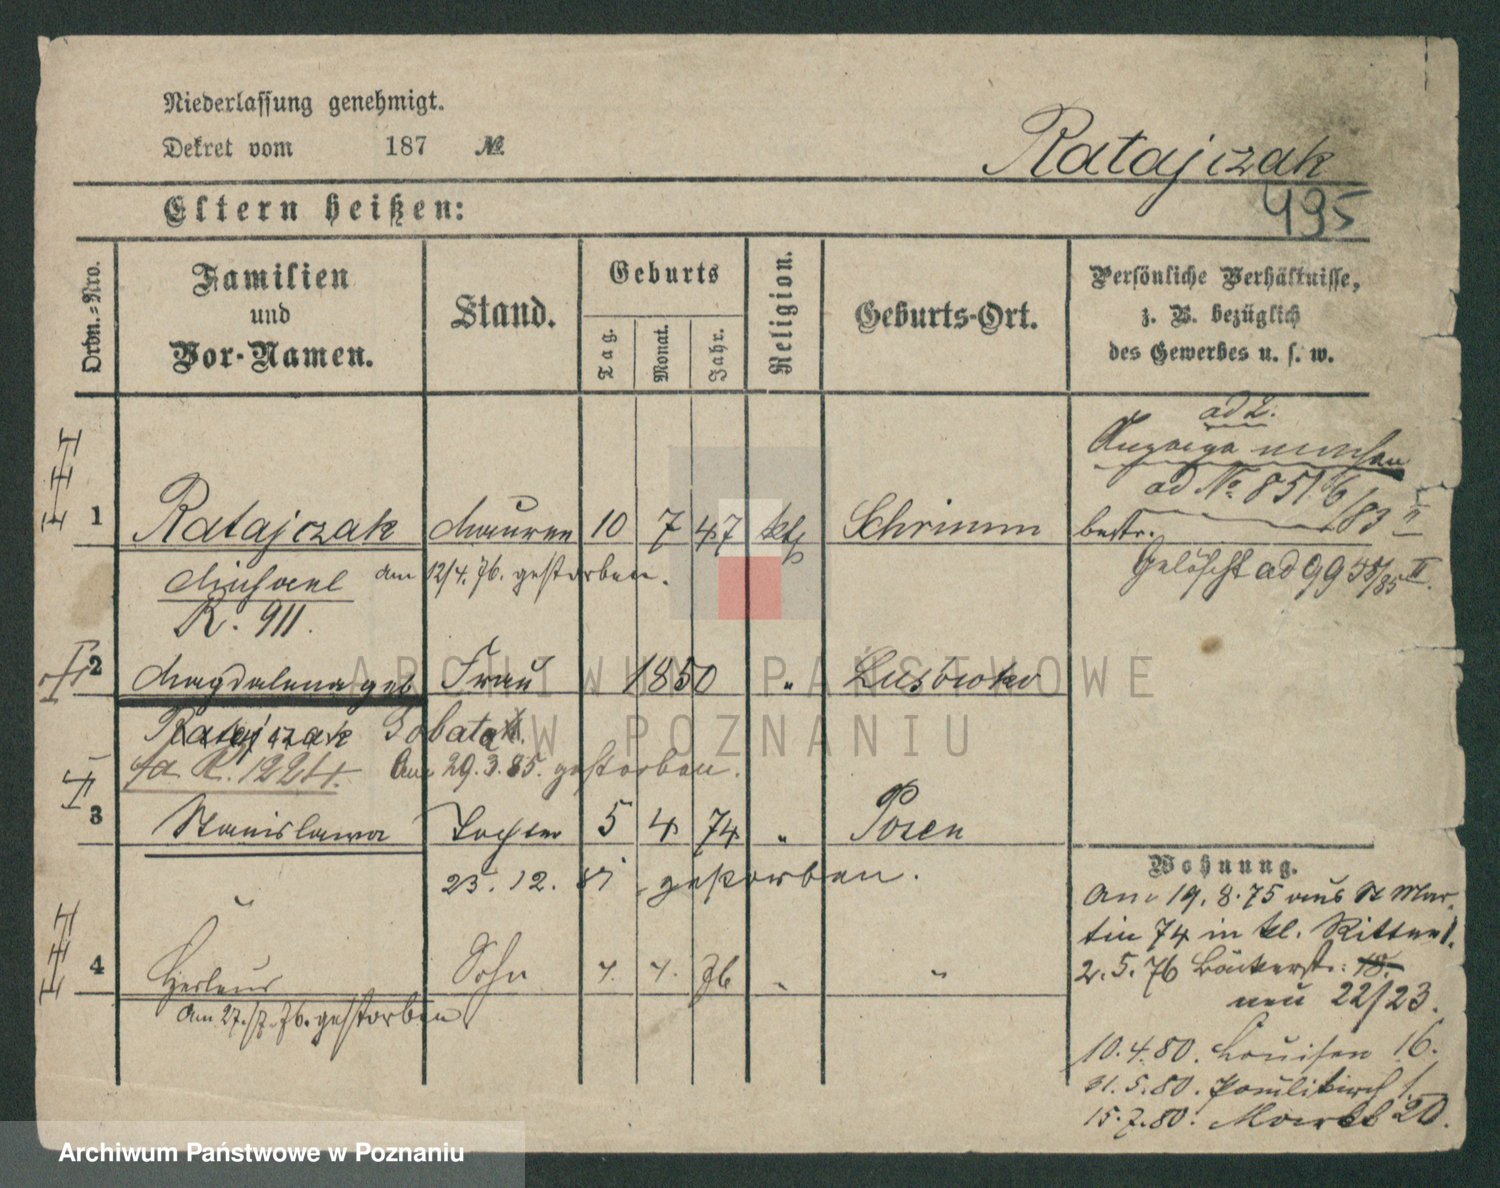 Niederlassung genehmigt.
Dekret vom 187 №
Ratajczak
495
Eltern heißen:
Ordn.-Nro.
Familien und Vor-Namen.
Stand.
Geburts
Tag.
Monat.
Jahr.
Religion.
Geburts-Ort.
Persönliche Verhältnisse, z. B. bezüglich des Gewerbes u. s. w.
ad 2.
ad No. 851 6/83 II
bestr.
Gelöscht ad 9955/85 II.
1 Ratajczak Maurer 10 7 47 kth Schrimm
Michael am 12/4. 76. gestorben.
R. 911.
2 Magdalena geb. Frau 1850 "
Ratajczak Sobata
R. 1224. Am 29.3.85. gestorben.
3 Stanislawa Tochter 5 4 74 " Posen
25. 12. 81 gestorben.
4 Sohn 4. 4. 76 " "
Am 27./7. 76. gestorben
Wohnung.
Am 19. 8. 75 aus St Mar-
tin 74 in kl. Ritterst.
2. 5. 76 Bäckerstr: 18.
neu 22/23.
10. 4. 80. Louisen 16.
31. 5. 80. Paulikirch 1.
15. 7. 80. Markt 20.
ARCHIWUM PAŃSTWOWE
W POZNANIU
Archiwum Państwowe w Poznaniu